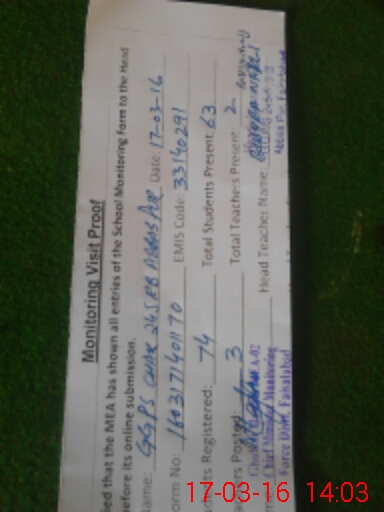 Monitoring Visit Proof
ied that the MEA has shown all entries of the School Monitoring Form to the Head
efore its online submission.
ame: GGPS CHAK 245 RB ABBAS PUR Date: 17-03-16
orm No: 1603171401170 EMIS Code: 33140291
nts Registered: 74 Total Students Present 63
ers Posted 3 Total Teachers Present: 2
Head Teacher Name
Chief Minister Monitoring
Force Distt. Faisalabad
17-03-16 14:03